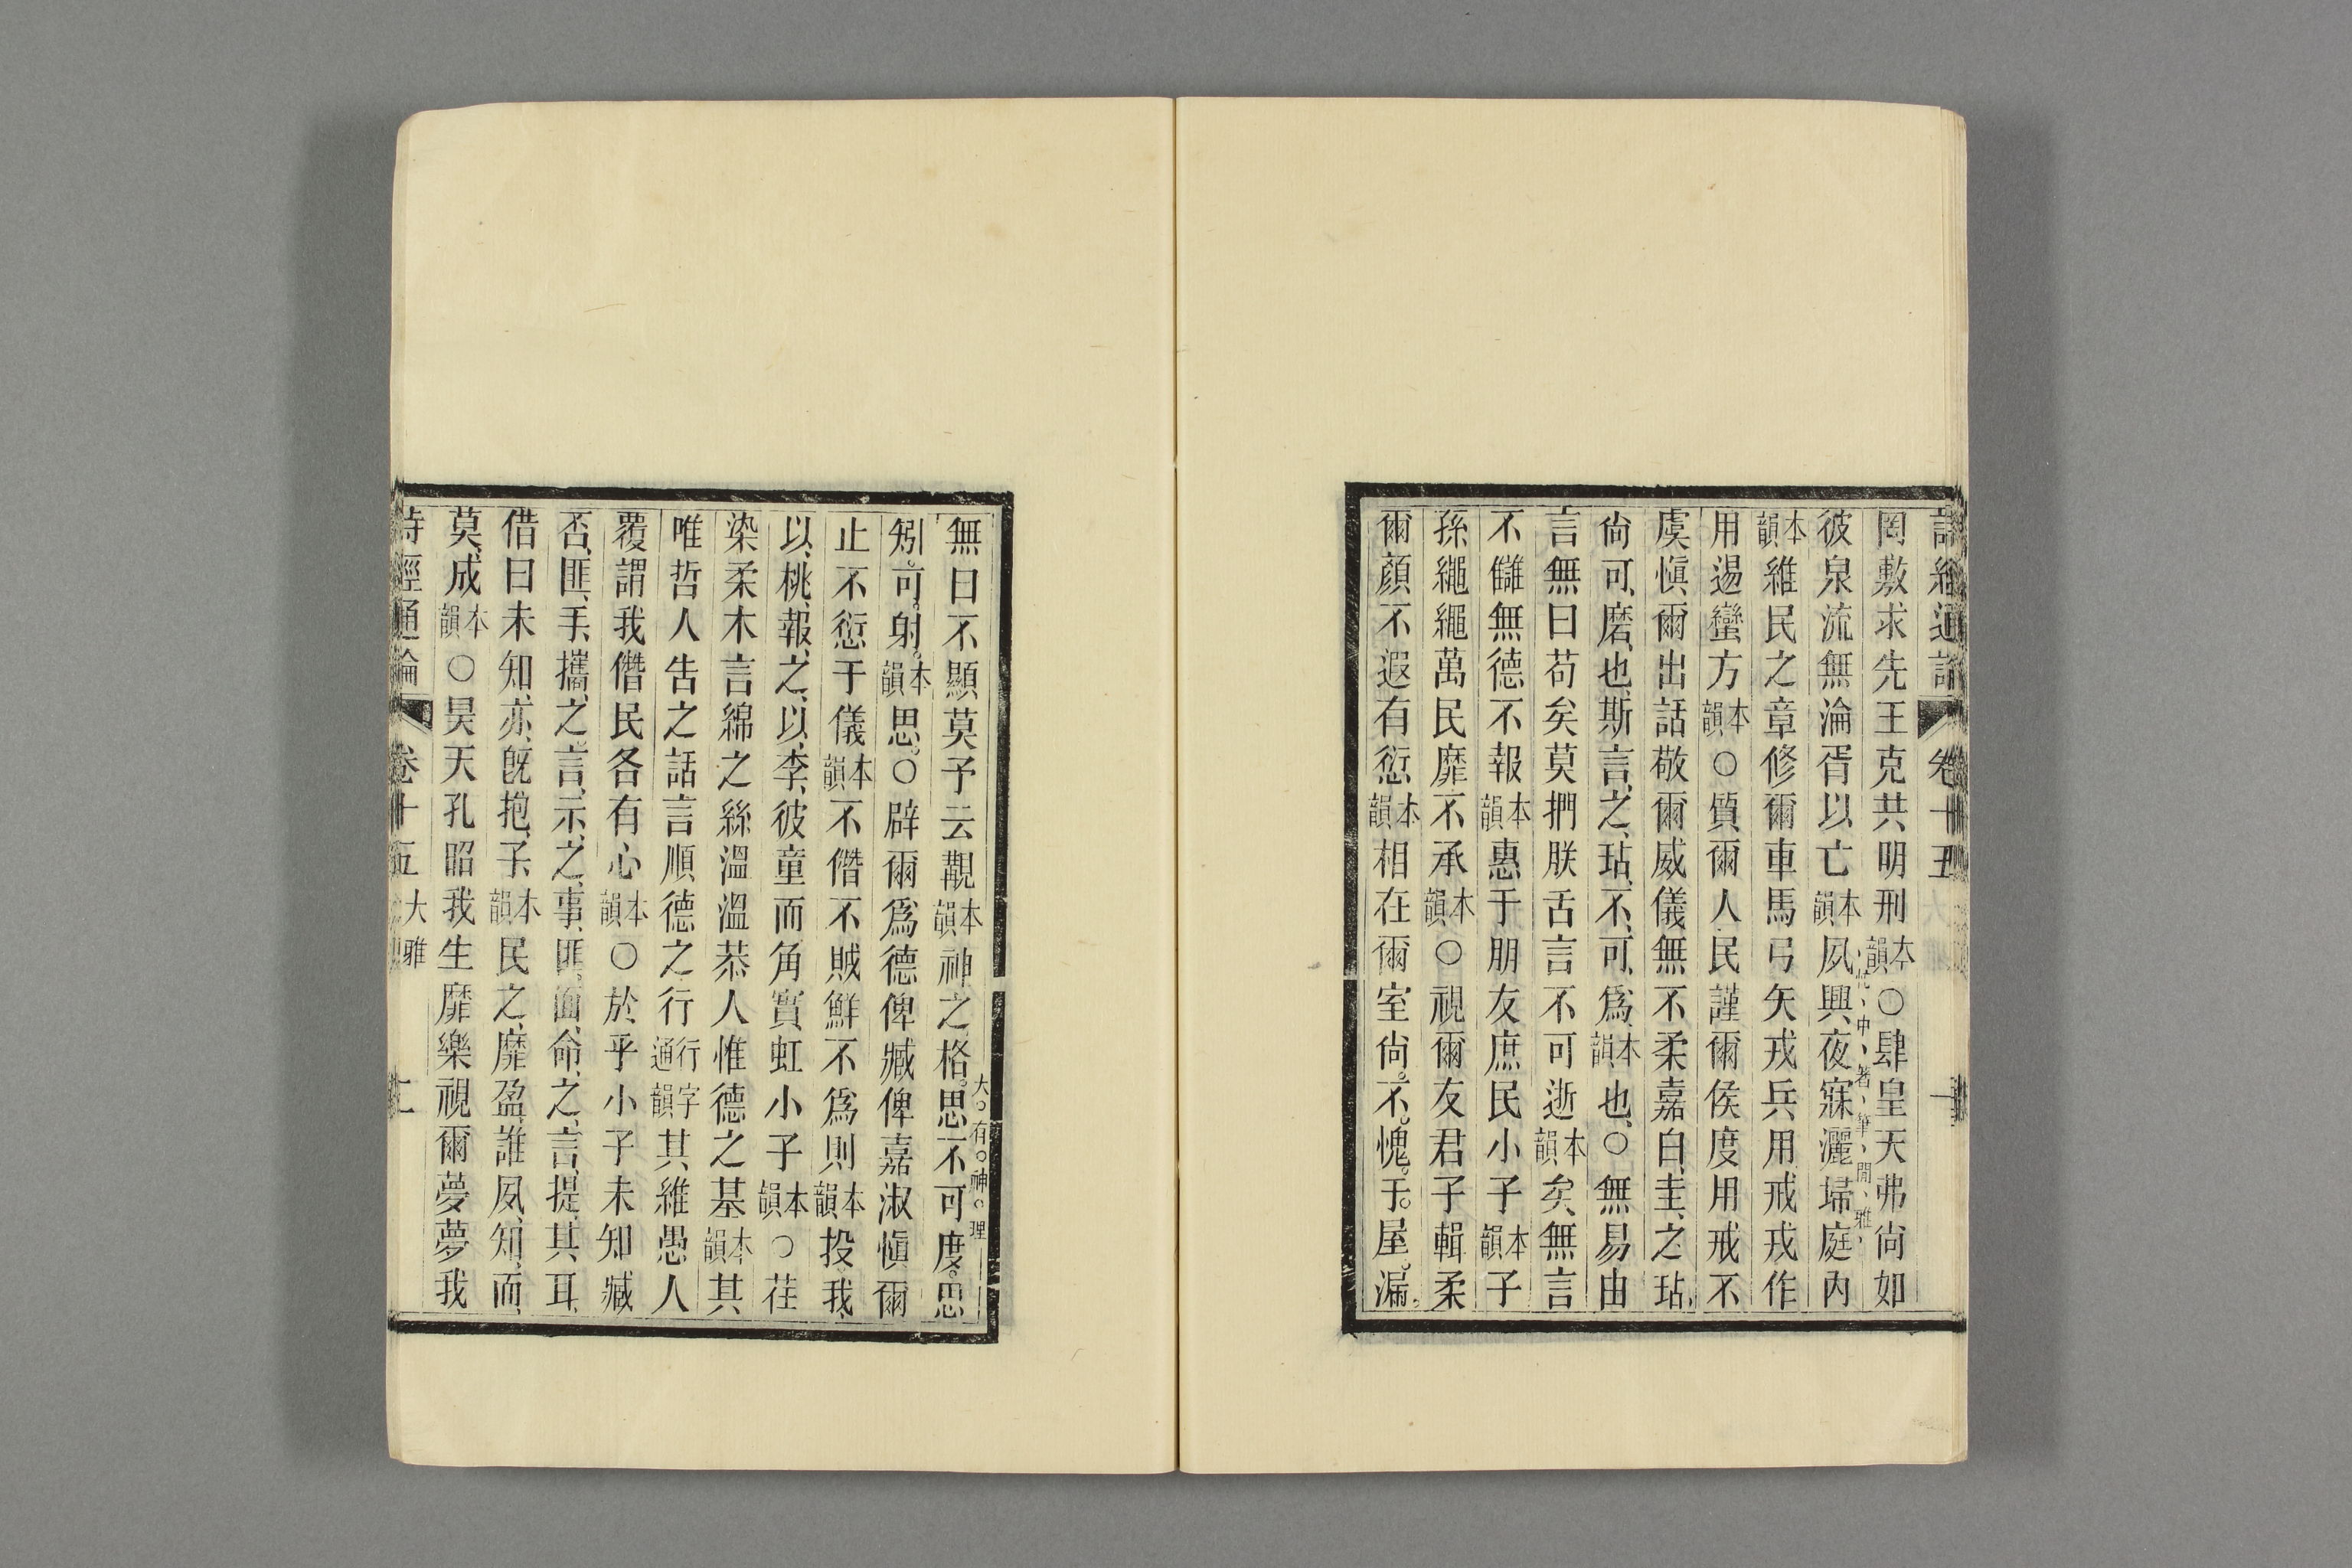 罔敷求先王克共明刑本韻○肆皇天弗尙如
彼泉流無淪胥以亡本韻夙興夜寐灑埽庭內
忙中著筆閒雅
本韻維民之章修爾車馬弓矢戎兵用戒戎作
用逷蠻方本韻○質爾人民謹爾侯度用戒不
虞愼爾出話敬爾威儀無不柔嘉白圭之玷
尙可磨也斯言之玷不可爲本韻也○無易由
言無曰苟矣莫捫朕舌言不可逝本韻矣無言
不讎無德不報本韻惠于朋友庶民小子本韻子
孫繩繩萬民靡不承本韻○視爾友君子輯柔
爾顏不遐有愆本韻相在爾室尙不愧于屋漏
無曰不顯莫予云覯本韻神之格思不可度思
大有神理
矧可射本韻思○辟爾爲德俾臧俾嘉淑愼爾
止不愆于儀本韻不僭不賊鮮不爲則本韻投我
以桃報之以李彼童而角實虹小子本韻○荏
染柔木言緡之絲溫溫恭人惟德之基本韻其
唯哲人告之話言順德之行行字通韻其維愚人
覆謂我僭民各有心本韻○於乎小子未知臧
否匪手攜之言示之事匪面命之言提其耳
借曰未知亦旣抱子本韻民之靡盈誰夙知而
莫成本韻○昊天孔昭我生靡樂視爾夢夢我
詩經通論 卷十五 大雅